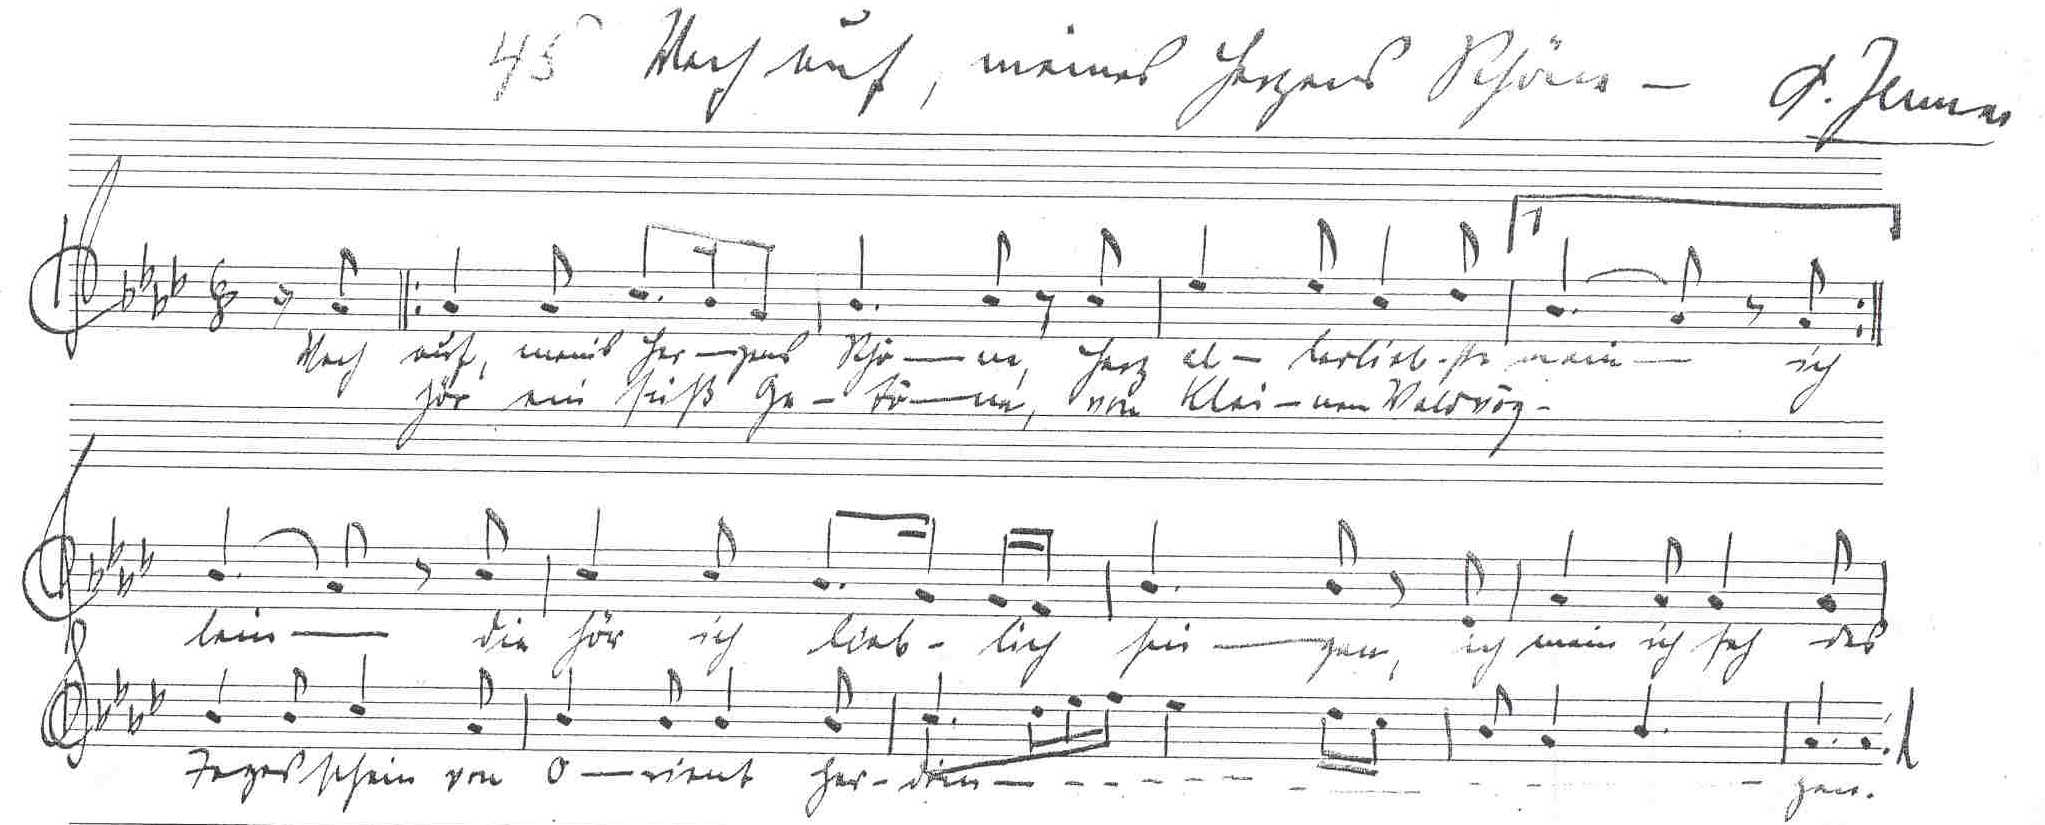 45 Wach auf, meines Herzens Schöne –
1
Wach auf, meins Her-zens Schö-ne, Herz al-lerlieb-ste mein – ich
hör ein süß Ge-tö-ne, von Klei-nen Waldvög-
lein – die hör ich lieb-lich sin-gen, ich mein ich seh des
Tages schein von O-rient her-drin-
gen.